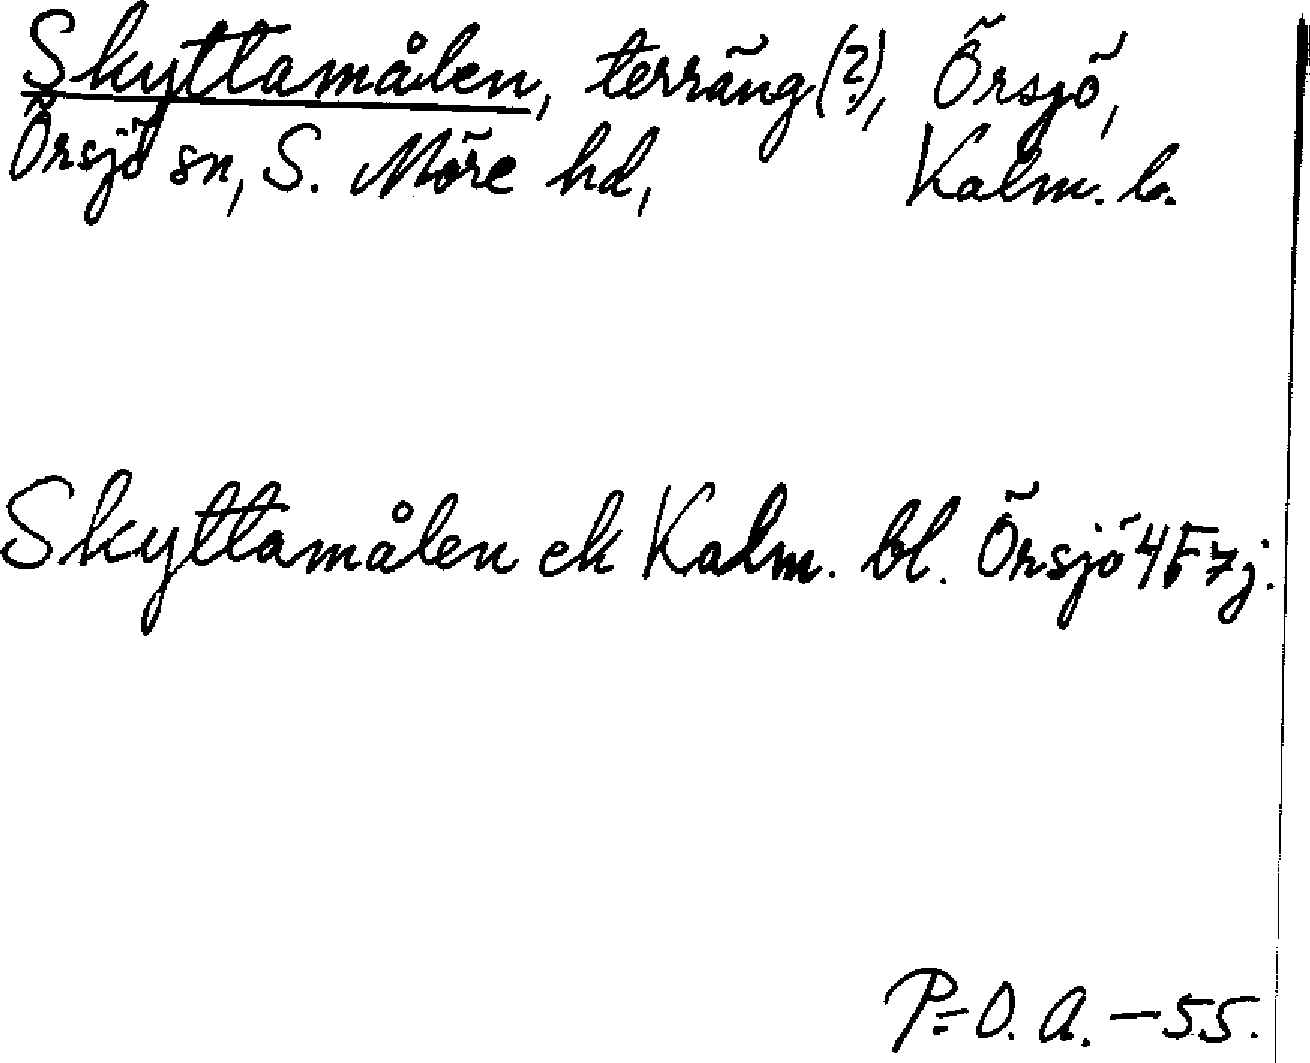 Skyttamålen, terräng(?), Örsjö,
Örsjö sn, S. Möre hd, Kalm. l.
Skyttamålen ek Kalm. bl. Örsjö 4F7j.
P=O. A. - 55.